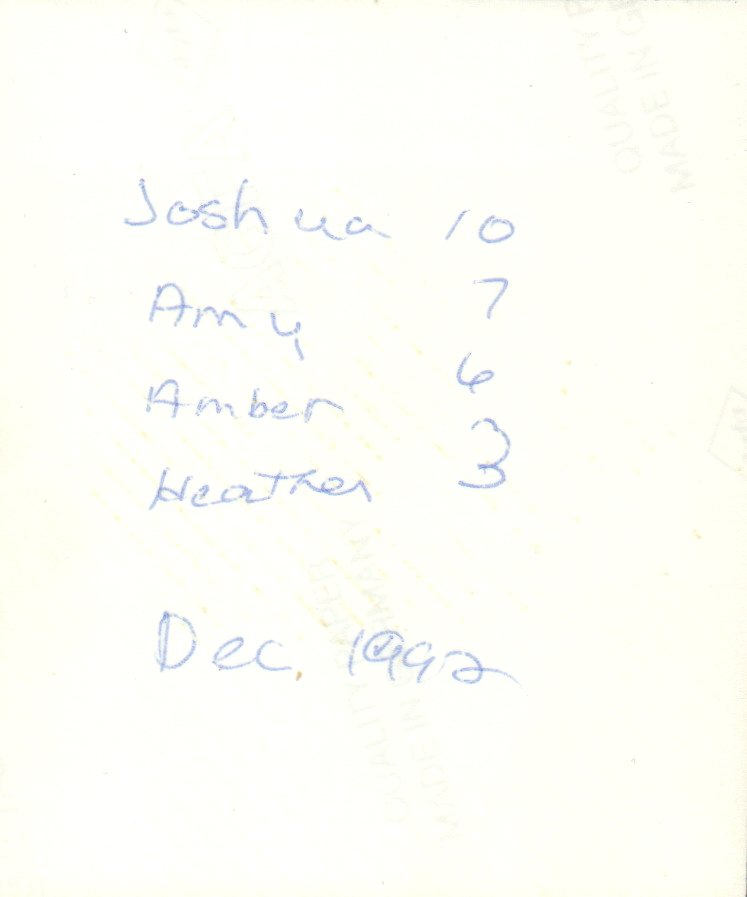 Joshua 10
Amy 7
Amber 6
Heather 3
Dec. 1992
QUALITY
MADE IN
QUALITY PAPER
MADE IN GERMANY